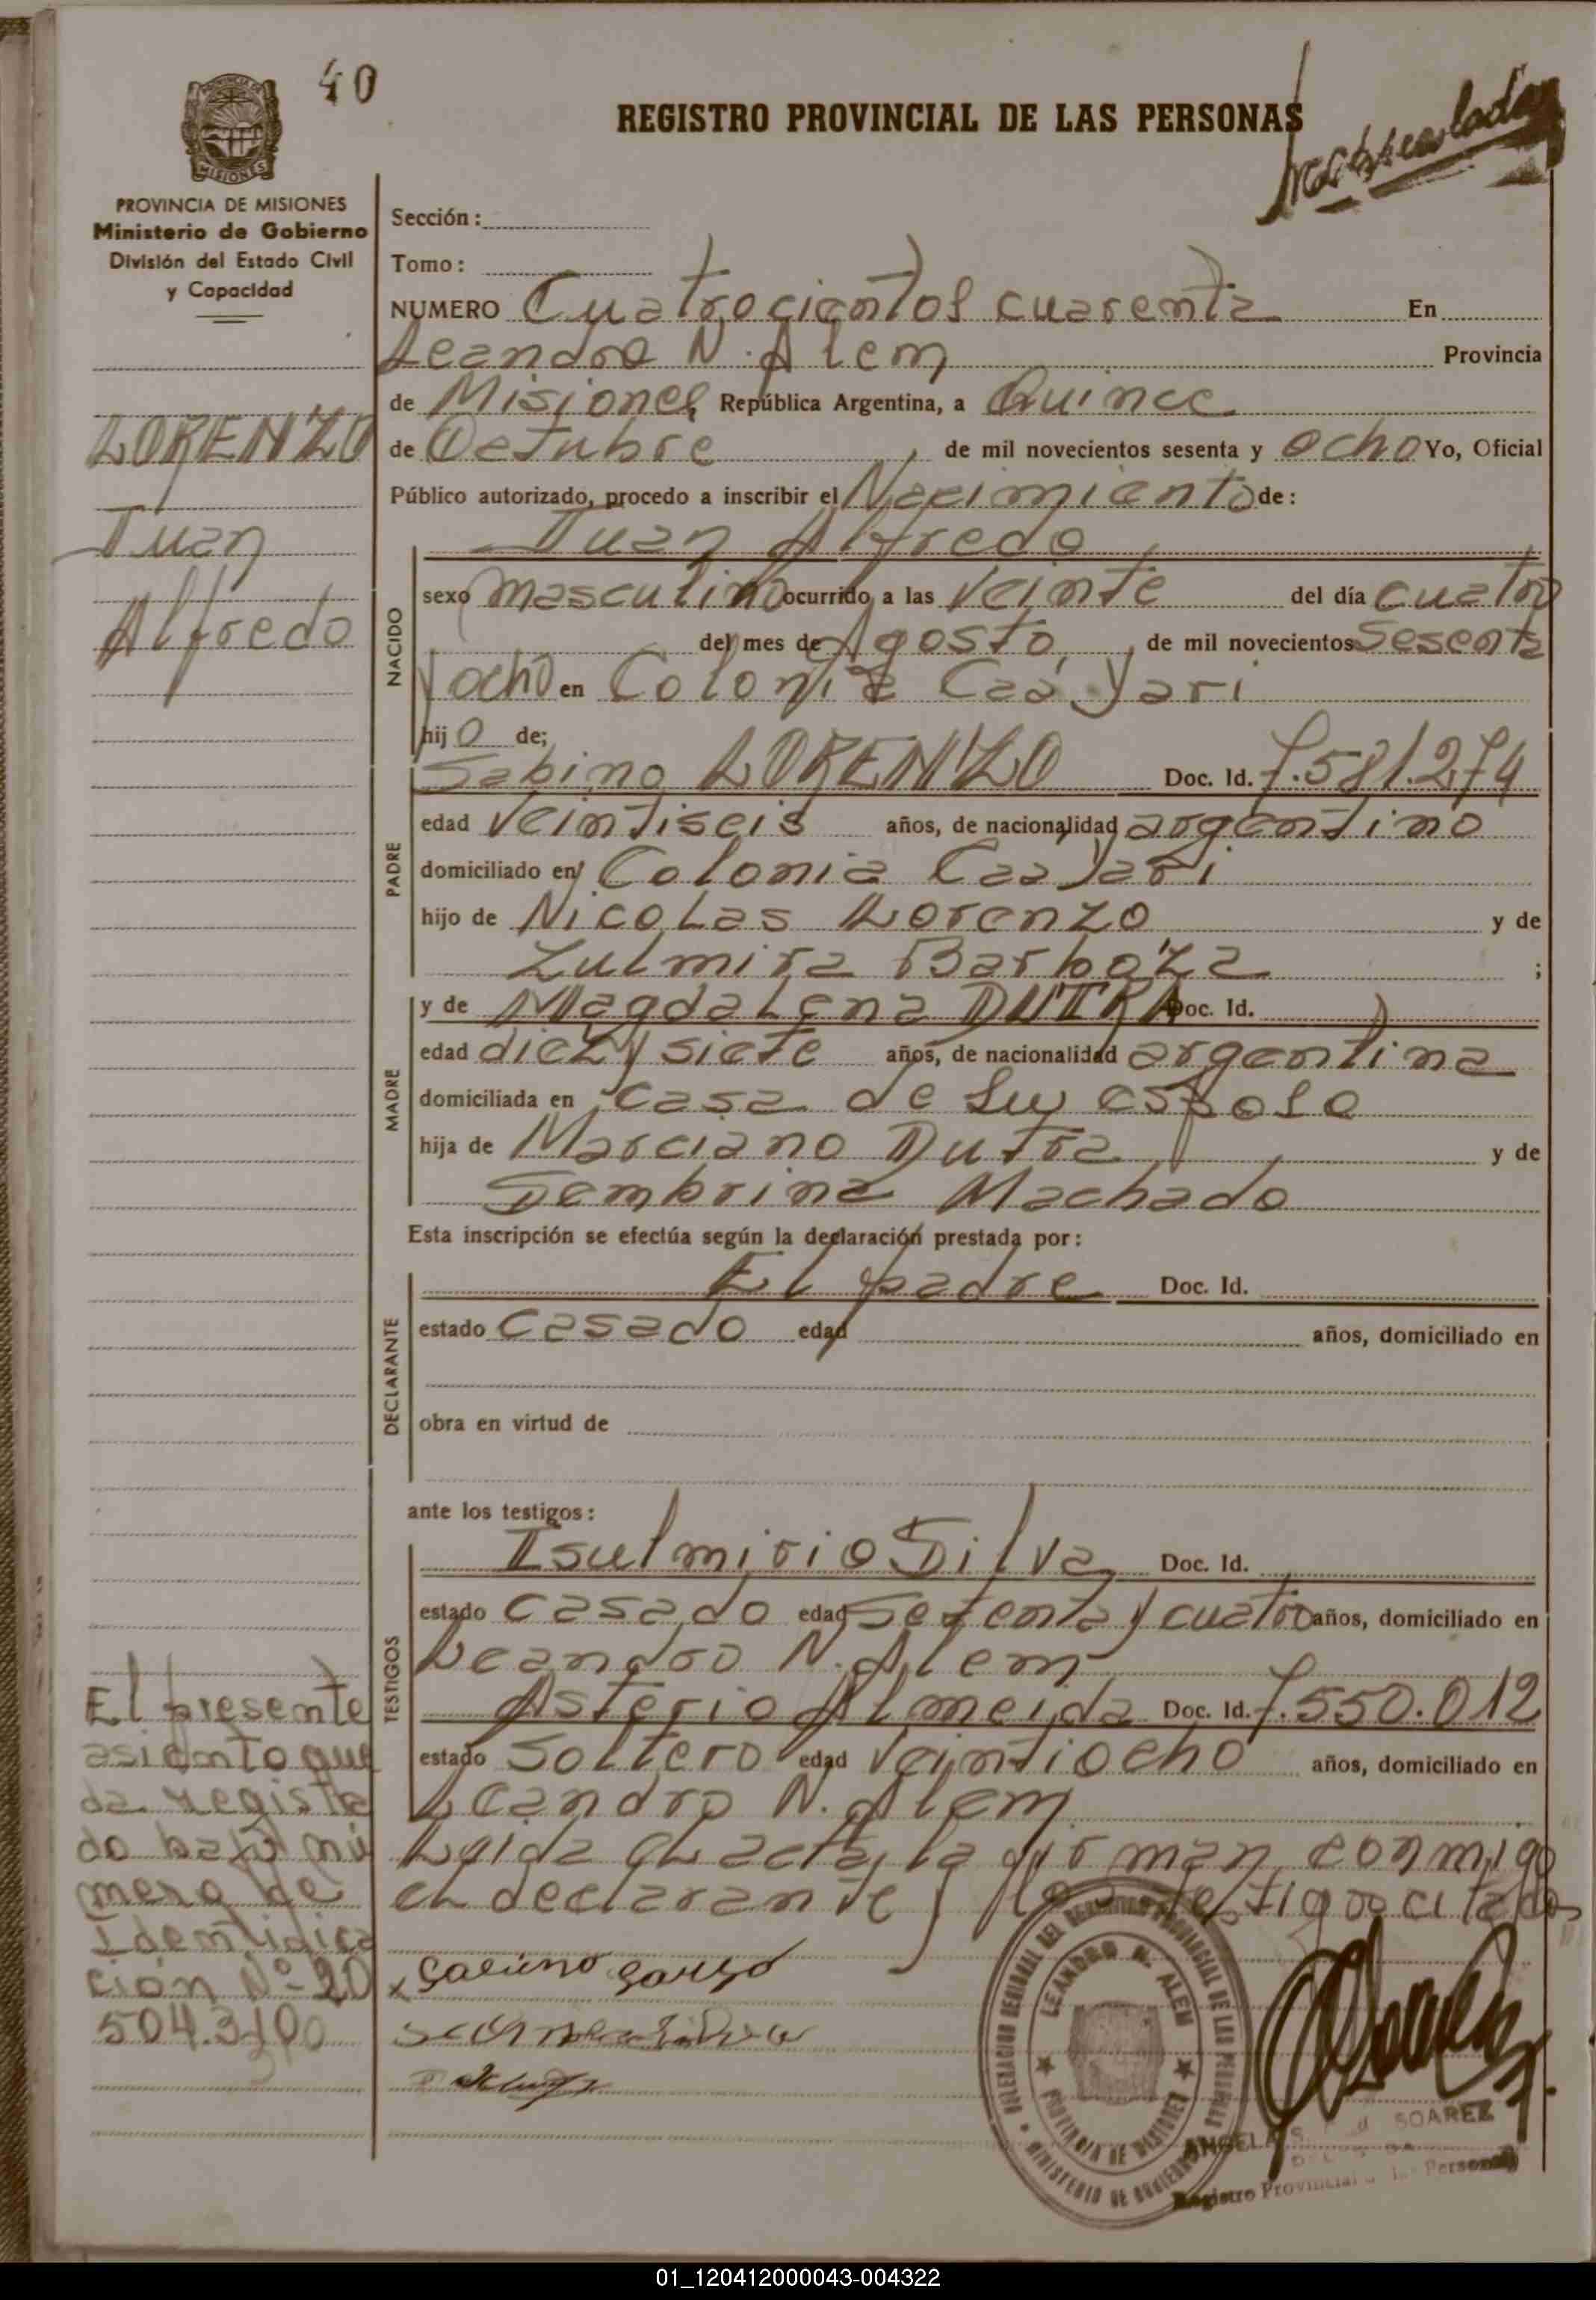 40
REGISTRO PROVINCIAL DE LAS PERSONAS
PROVINCIA DE MISIONES
Ministerio de Gobierno
División del Estado Civil
y Capacidad
Sección:
Tomo:
NUMERO Cuatrocientos cuarenta En
Leandro N. Alem Provincia
de Misiones República Argentina, a Quince
de Octubre, de mil novecientos sesenta y ocho Yo, Oficial
Público autorizado, procedo a inscribir el Nacimiento de:
LORENZO
Juan
Alfredo
NACIDO
Juan Alfredo
sexo masculino ocurrido a las veinte del día cuatro
del mes de Agosto, de mil novecientos Sesenta
y ocho en Colonia Caá Yari
hijo de;
PADRE
Sabino LORENZO Doc. Id. 7.581.274
edad veintiseis años, de nacionalidad argentino
domiciliado en Colonia Caa Yari
hijo de Nicolas Lorenzo y de
Zulmira Barboza ;
MADRE
y de Magdalena DUTRA Doc. Id.
edad diez y siete años, de nacionalidad argentina
domiciliada en casa de su esposo
hija de Marciano Dutra y de
Sembrina Machado
Esta inscripción se efectúa según la declaración prestada por:
DECLARANTE
El padre Doc. Id.
estado casado edad años, domiciliado en
obra en virtud de
ante los testigos:
TESTIGOS
Isulmirio Silva Doc. Id.
estado casado edad setenta y cuatro años, domiciliado en
Leandro N. Alem
Asterio Almeida Doc. Id. 7.550.012
estado soltero edad veintiocho años, domiciliado en
Leandro N. Alem
Leida el acta, la firman conmigo
el declarante y los testigos citados
El presente
asiento que
da registra
do bajo nú
mero de
Identifica
ción Nº 20
504.310
DELEGACION REGIONAL DEL REGISTRO PROVINCIAL DE LAS PERSONAS
LEANDRO N. ALEM
PROVINCIA DE MISIONES
MINISTERIO DE GOBIERNO
ANGELA S. SOAREZ
Registro Provincial de las Personas
01_120412000043-004322